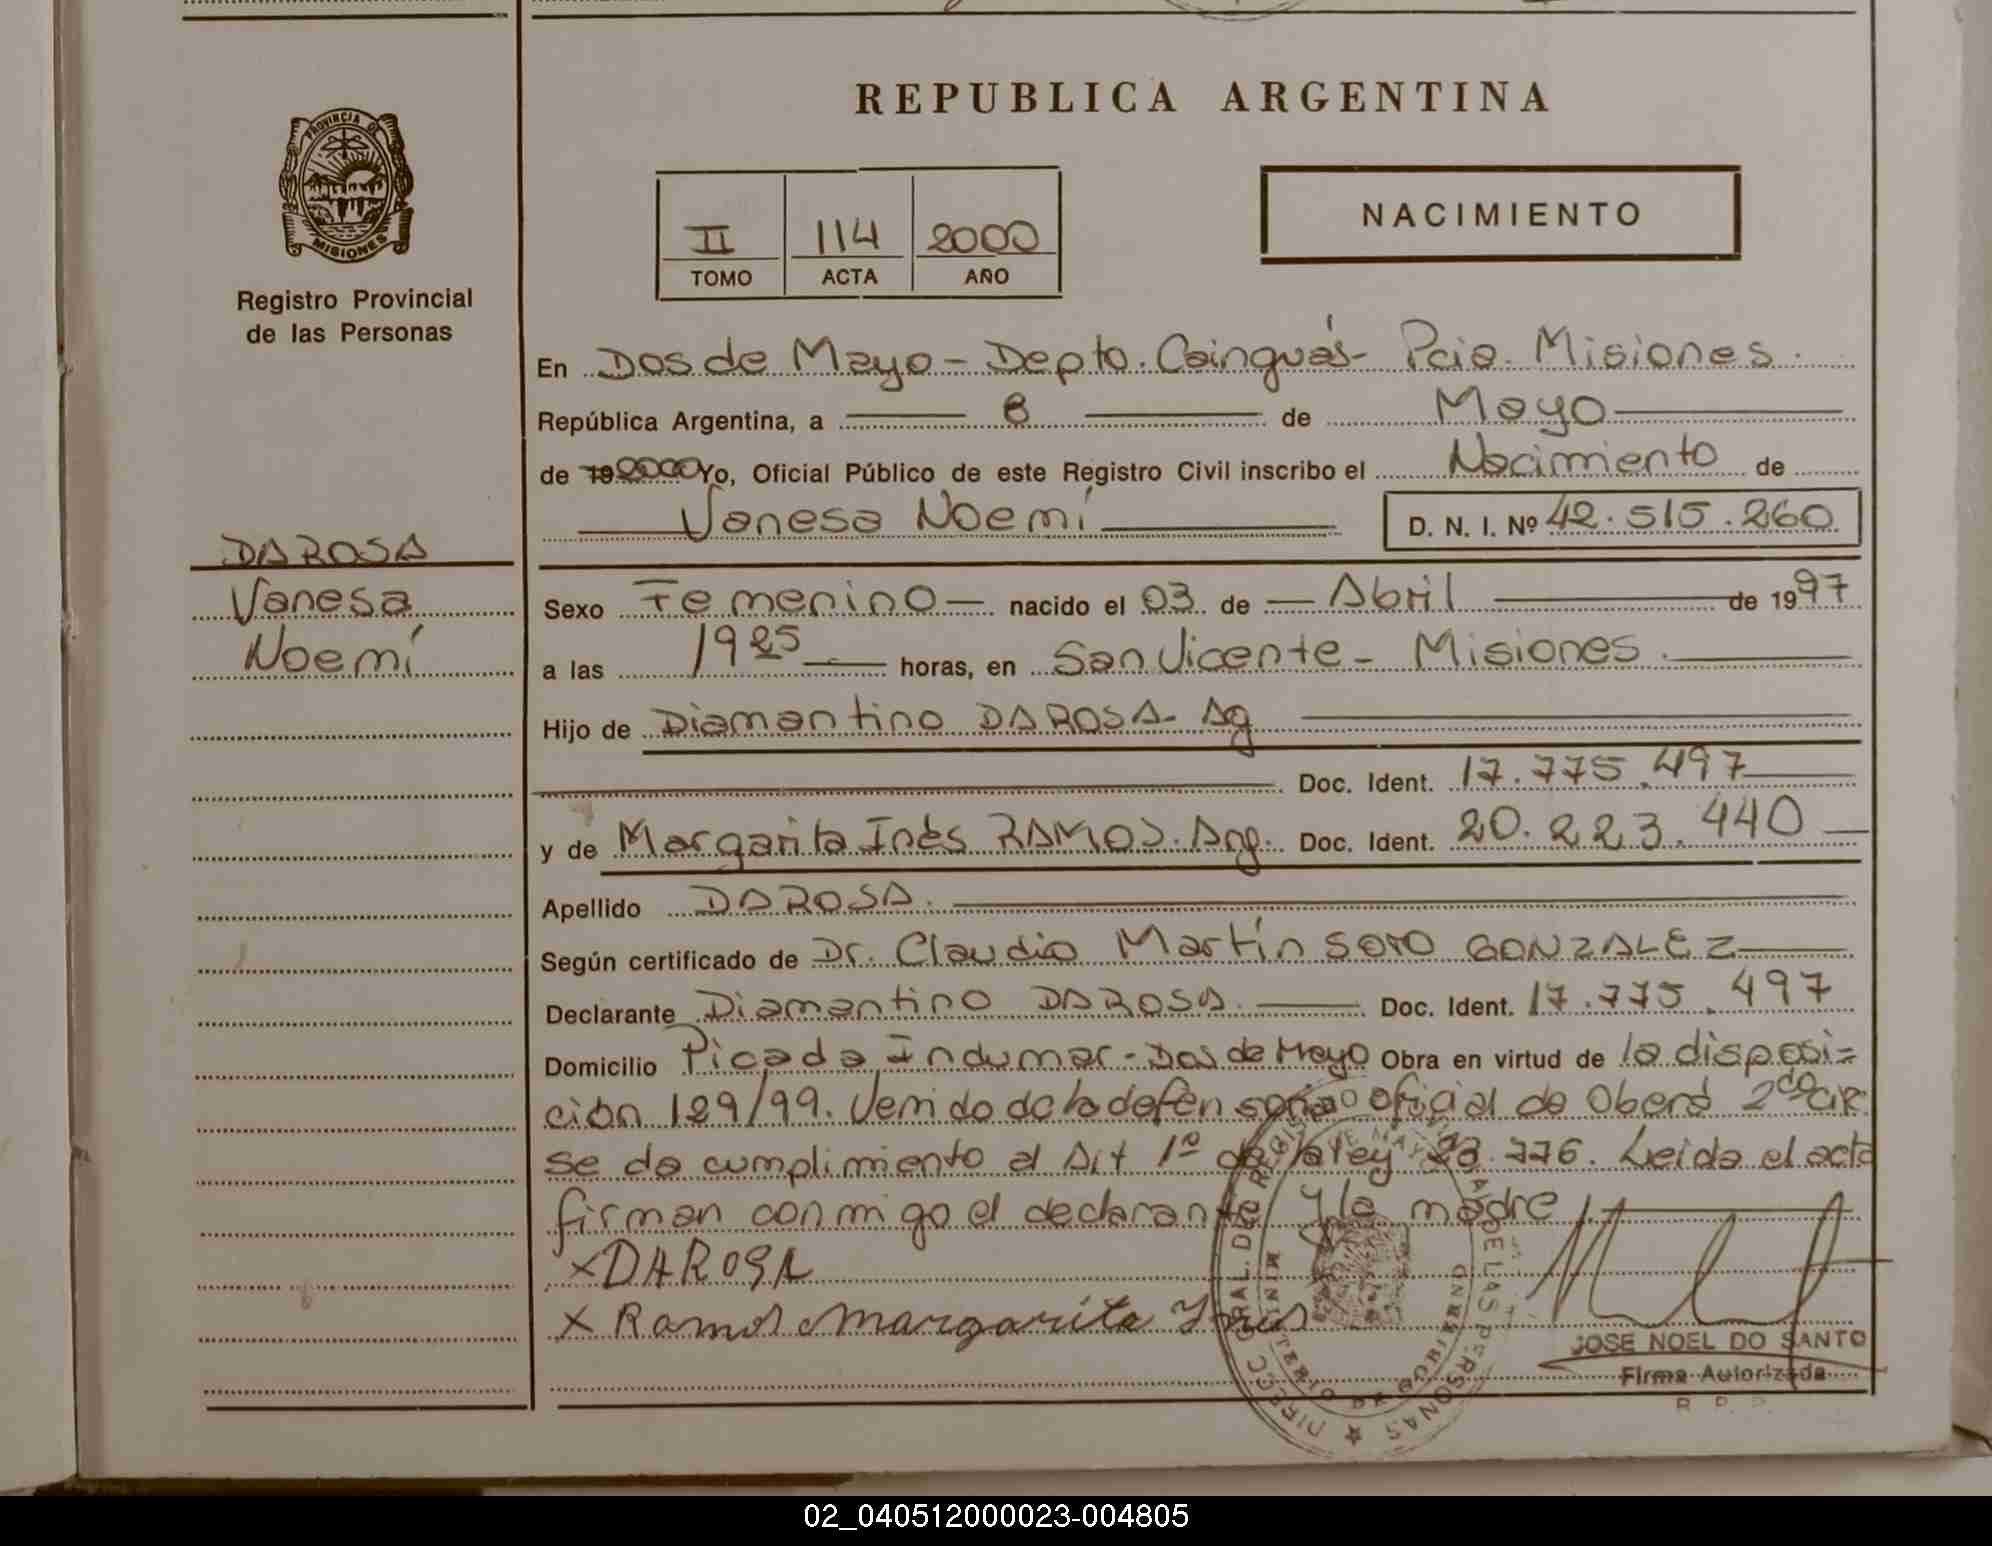 REPUBLICA ARGENTINA
PROVINCIA DE
MISIONES
Registro Provincial
de las Personas
II 114 2000
TOMO ACTA AÑO
NACIMIENTO
En Dos de Mayo - Depto. Cainguás - Pcia. Misiones.
República Argentina, a 8 de Mayo
de 19 2000 Yo, Oficial Público de este Registro Civil inscribo el Nacimiento de
Vanesa Noemí D. N. I. Nº 42.515.260
DA ROSA
Vanesa
Noemí
Sexo Femenino - nacido el 03 de Abril de 1997
a las 1925 horas, en San Vicente - Misiones.
Hijo de Diamantino DA ROSA - Ag
Doc. Ident. 17.775.497
y de Margarita Inés RAMOS. Arg. Doc. Ident. 20.223.440
Apellido DA ROSA.
Según certificado de Dr. Claudio Martín SOTO GONZALEZ
Declarante Diamantino DA ROSA. Doc. Ident. 17.775.497
Domicilio Picada Indumar - Dos de Mayo Obra en virtud de la disposi=
ción 129/99. Venido de la defensoria oficial de Oberá 2da cir.
se da cumplimiento al Art 1º de la ley 23.776. Leida el acta
firman conmigo el declarante y la madre.
x DA ROSA
x Ramos Margarita Ines
DIRECC. GRAL. DE REG. DE LAS PERSONAS
MINISTERIO DE GOBIERNO
JOSE NOEL DO SANTO
Firma Autorizada
R. P. P.
02_040512000023-004805